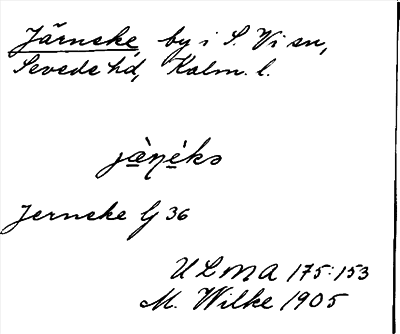 Järneke, by i S. Vi sn,
Sevede hd, Kalm. l.
jæ̀ŋékə
Jerneke G 36
ULMA 175:153
M. Wilke 1905